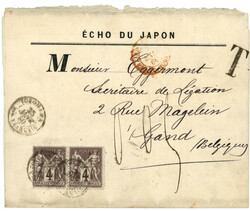 ÉCHO DU JAPON
T
Monsieur Eggermont
Secrétaire de Légation
2 Rue Magelein
Gand
(Belgique)
4 4